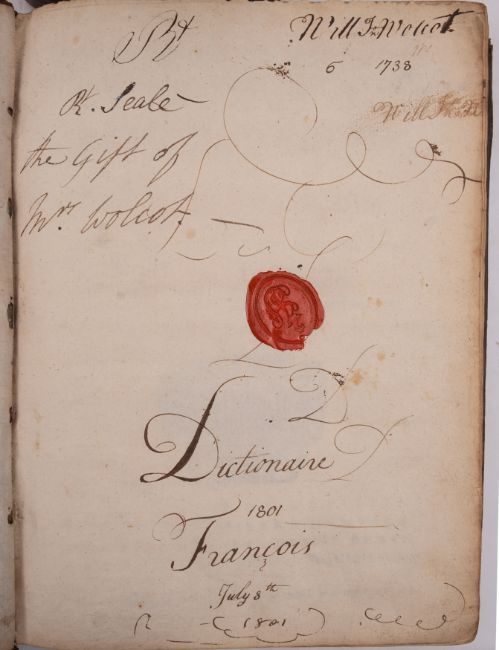 Rt
Will Fr Wolcot
6 1738
Rt. Seale
Will
the Gift of
Mrs Wolcot.
D
Dictionaire
1801
François
July 8th
1801